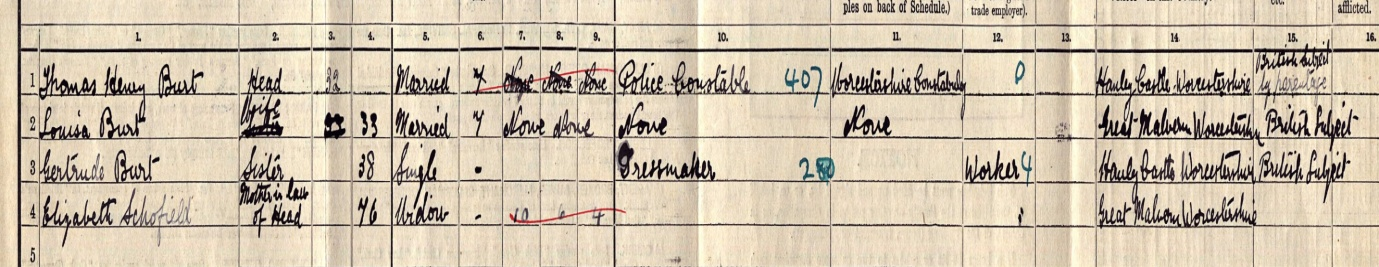 ples on back of Schedule.) trade employer). etc. afflicted.
1. 2. 3. 4. 5. 6. 7. 8. 9. 10. 11. 12. 13. 14. 15. 16.
1 Thomas Henry Burt Head 32 Married 7 None None None Police Constable 407 Worcestershire Constabulary 0 Hanley Castle Worcestershire British Subject by parentage
2 Louisa Burt Wife 33 Married 7 None None None None Great Malvern Worcestershire British Subject
3 Gertrude Burt Sister 38 Single - Dressmaker 280 Worker 4 Hanley Castle Worcestershire British Subject
4 Elizabeth Schofield Mother in law of Head 76 Widow - 10 6 4 Great Malvern Worcestershire
5